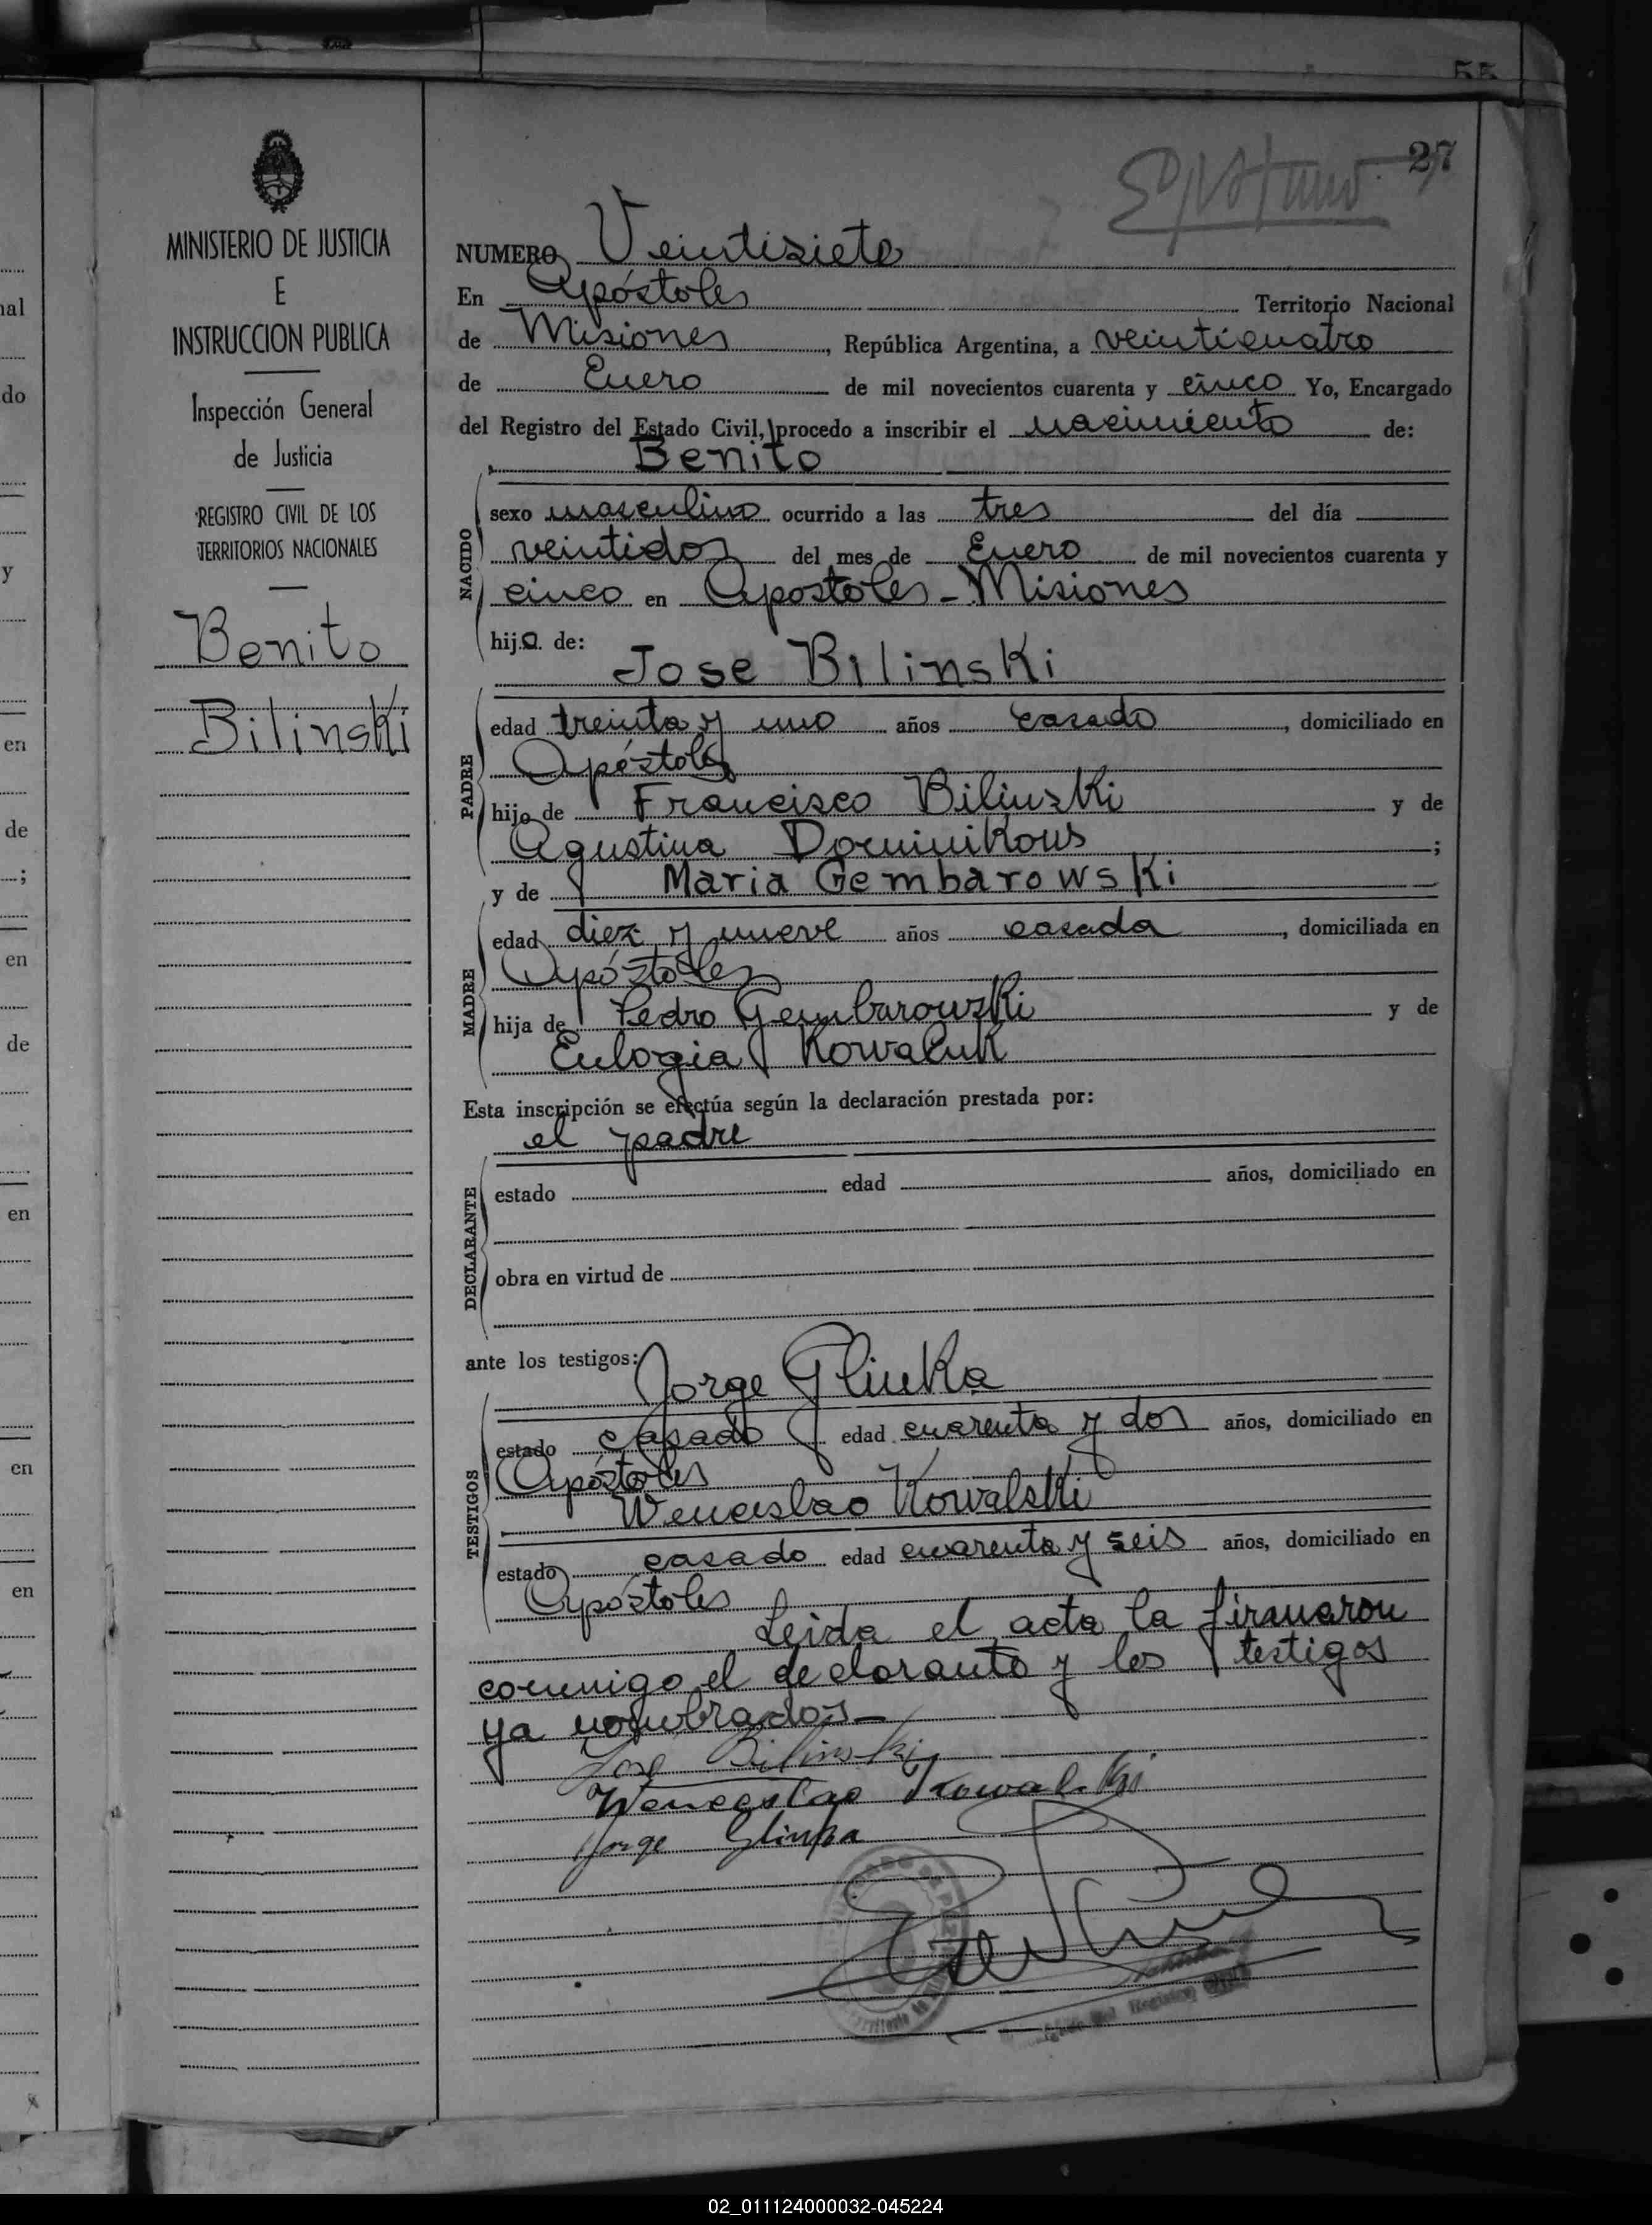 55
27
MINISTERIO DE JUSTICIA
E
INSTRUCCION PUBLICA
Inspección General
de Justicia
REGISTRO CIVIL DE LOS
TERRITORIOS NACIONALES
Benito
Bilinski
NUMERO Veintisiete
En Apóstoles Territorio Nacional
de Misiones, República Argentina, a veinticuatro
de Enero de mil novecientos cuarenta y cinco Yo, Encargado
del Registro del Estado Civil, procedo a inscribir el nacimiento de:
Benito
NACIDO
sexo masculino ocurrido a las tres del día
veintidos del mes de Enero de mil novecientos cuarenta y
cinco en Apostoles - Misiones
hijo de:
Jose Bilinski
PADRE
edad treinta y uno años casado, domiciliado en
Apóstoles
hijo de Francisco Bilinski y de
Agustina Dominikous;
y de Maria Gembarowski
MADRE
edad diez y nueve años casada, domiciliada en
Apóstoles
hija de Pedro Gembarowski y de
Eulogia Kowaluk
Esta inscripción se efectúa según la declaración prestada por:
el padre
DECLARANTE
estado edad años, domiciliado en
obra en virtud de
ante los testigos:
Jorge Glinka
TESTIGOS
estado casado edad cuarenta y dos años, domiciliado en
Apóstoles
Wenceslao Kowalski
estado casado edad cuarenta y seis años, domiciliado en
Apóstoles
Leida el acta la firmaron
conmigo el declarante y los testigos
ya nombrados.-
Jose Bilinski
Wenceslao Kowalski
Jorge Glinka
02_011124000032-045224